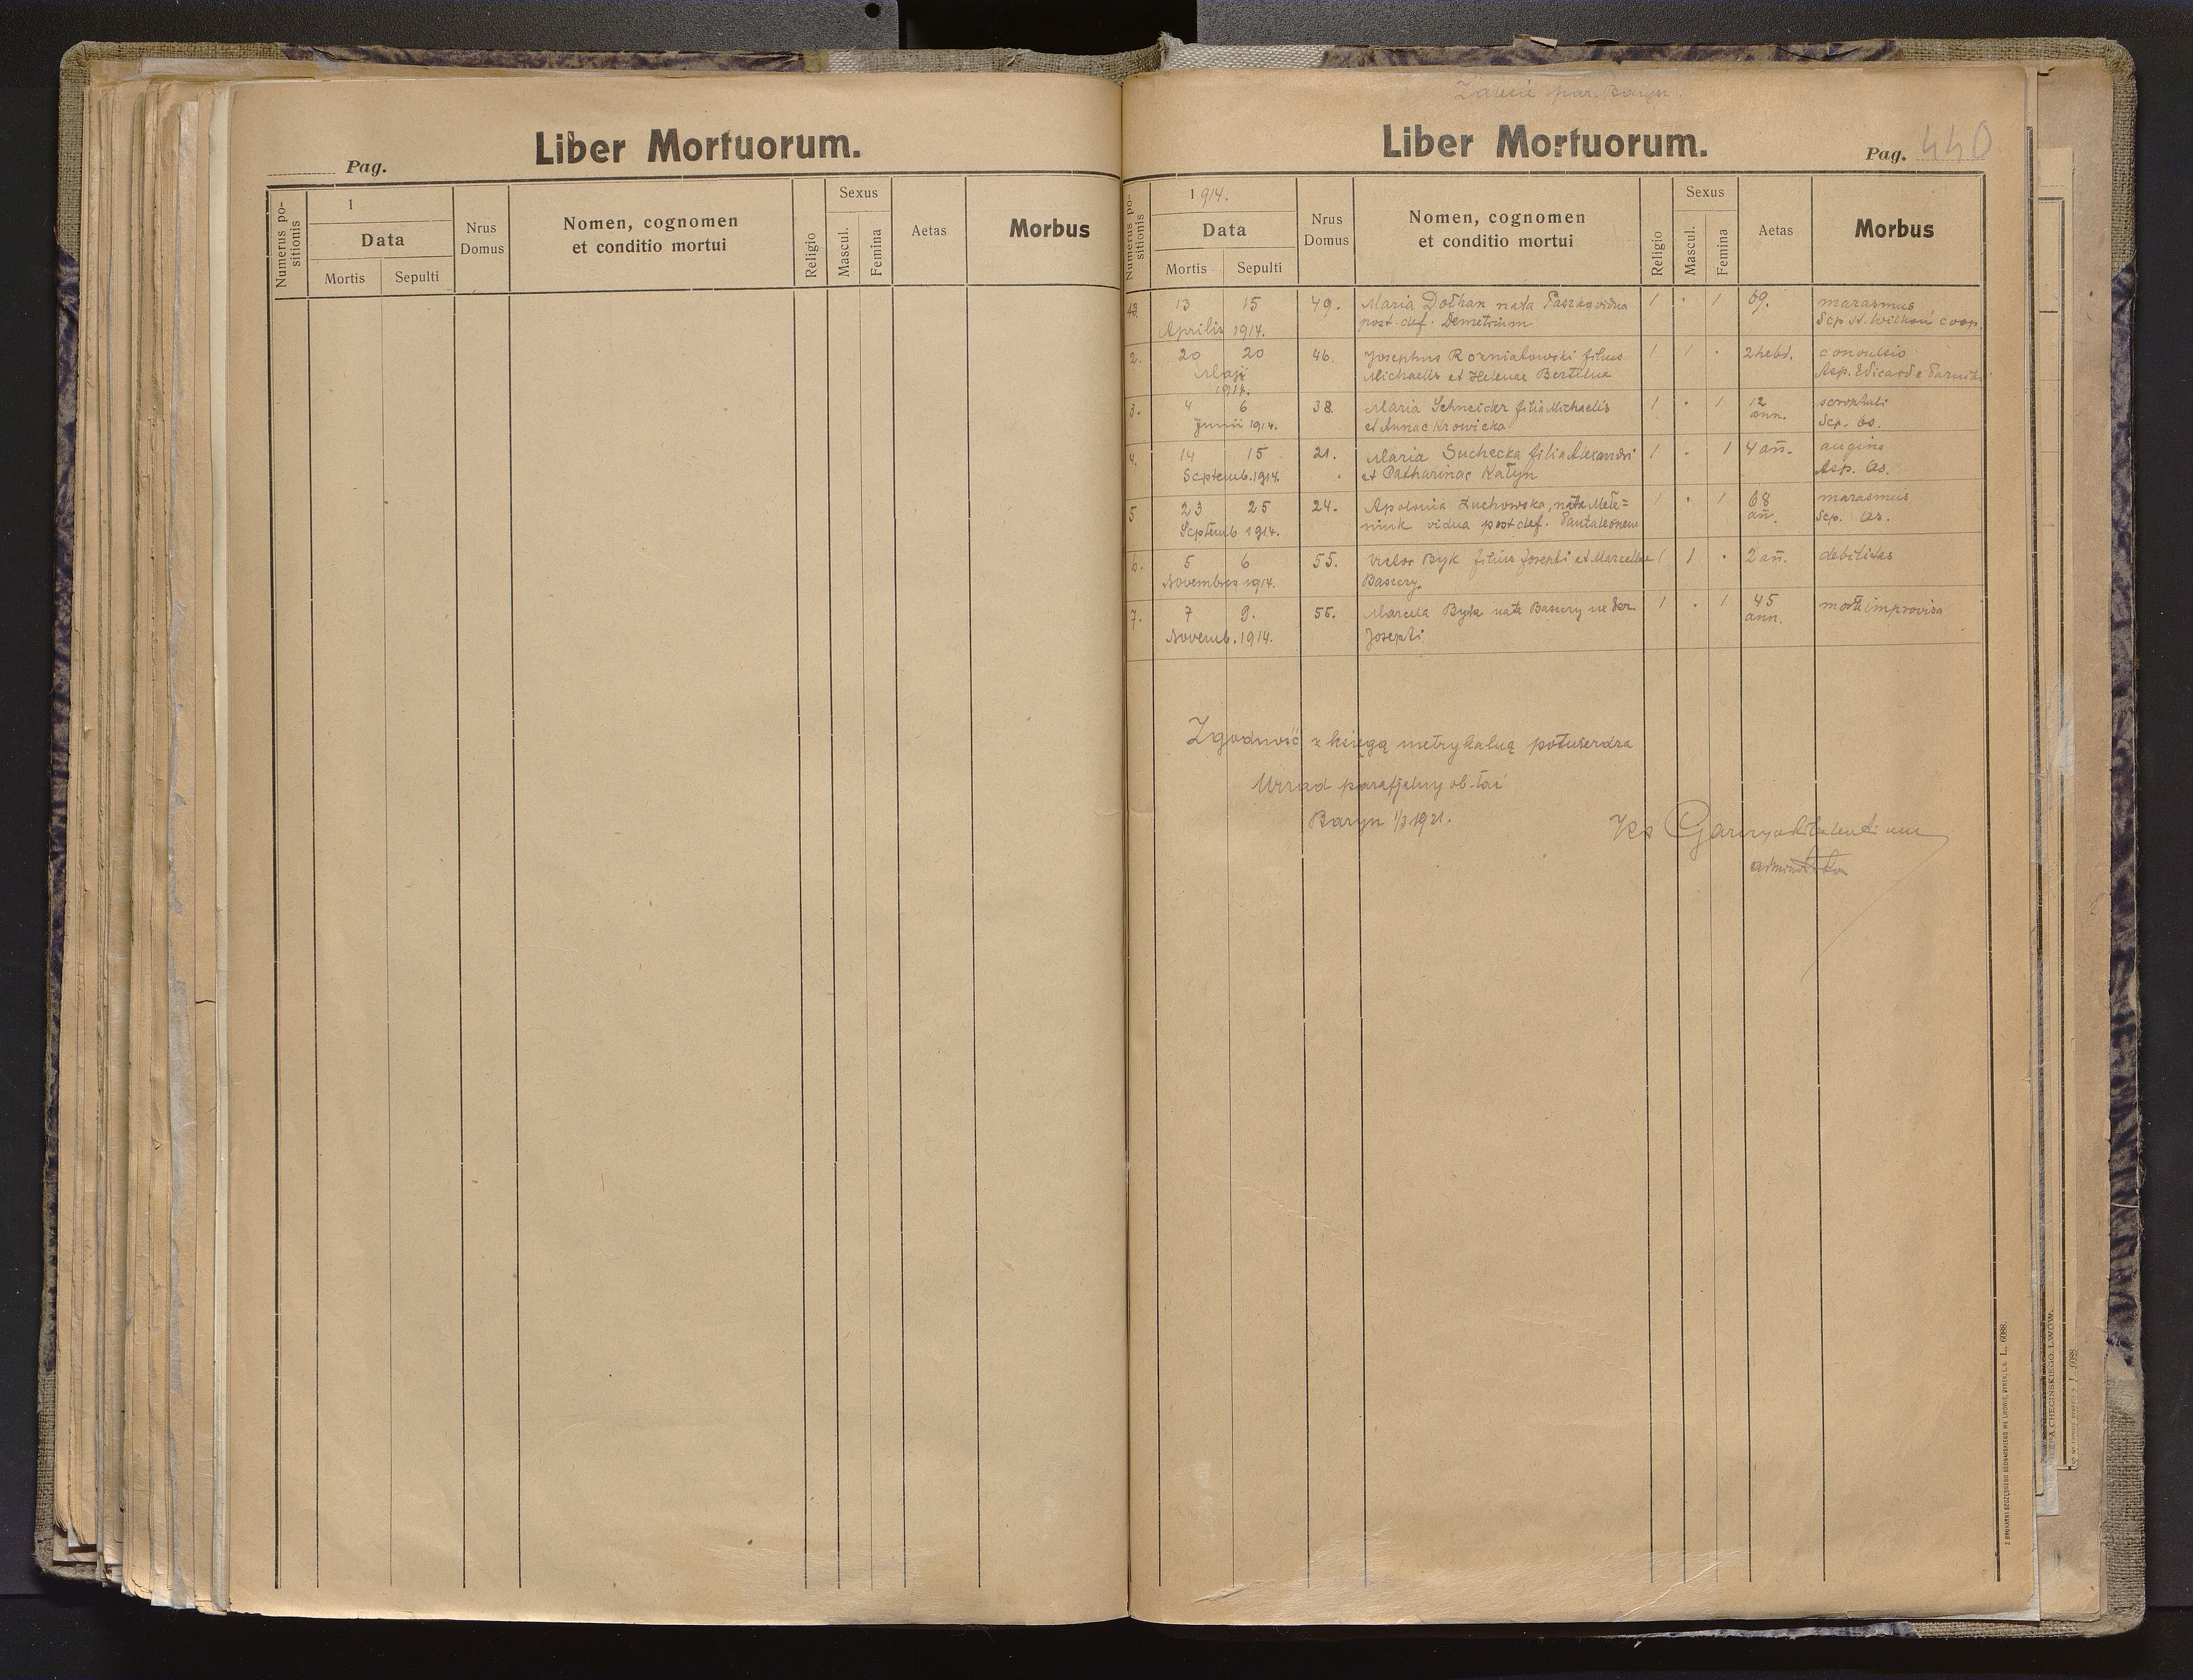 Liber Mortuorum.
Pag.
Numerus po-
sitionis
1
Data
Mortis Sepulti
Nrus
Domus
Nomen, cognomen
et conditio mortui
Religio
Sexus
Mascul.
Femina
Aetas
Morbus
Zalesie par. Baryn.
Liber Mortuorum.
Pag. 440
Numerus po-
sitionis
1914.
Data
Mortis Sepulti
Nrus
Domus
Nomen, cognomen
et conditio mortui
Religio
Sexus
Mascul.
Femina
Aetas
Morbus
13 15 49. Maria Dołhan nata vidua 1 · 1 69. marasmus
Aprilis 1914. post. def. Demetrium Scp. coop.
2. 20 20 46. Josephus Rozniatowski filius 1 1 · 2 hebd. convulsio
Maji Michaelis et Helenae Asp.
1914.
3. 4 6 38. Maria Schneider filia Michaelis 1 · 1 12
Junii 1914. et Annae Krowicka ann. Scp. os.
4. 14 15 21. Maria Suchecka filia Alexandri 1 · 1 4 an̄. angina
Septemb. 1914. et Catharinae Kałyn Asp. os.
5 23 25 24. Apolonia Żuchowska, nata 1 · 1 68 marasmus
Septemb 1914. vidua post def. Pantaleonem an̄. Scp. os.
6. 5 6 55. Victor Byk filius Josephi et Marcellae 1 1 · 2 an̄. debilitas
Novembris 1914. Basziry.
7. 7 9. 55. Marcela Byk nata uxor 1 · 1 45 mors improvisa
Novemb. 1914. Josephi ann.
Zgodność z księgą metrykalną potwierdza
Urząd parafjalny ob. łać
Baryn 1/3 1921.
Ks
administrator
Z DRUKARNI SZCZĘSNEGO BEDNARSKIEGO WE LWOWIE, RYNEK, L. 9. L. 6088.
CHĘCIŃSKIEGO, LWÓW.